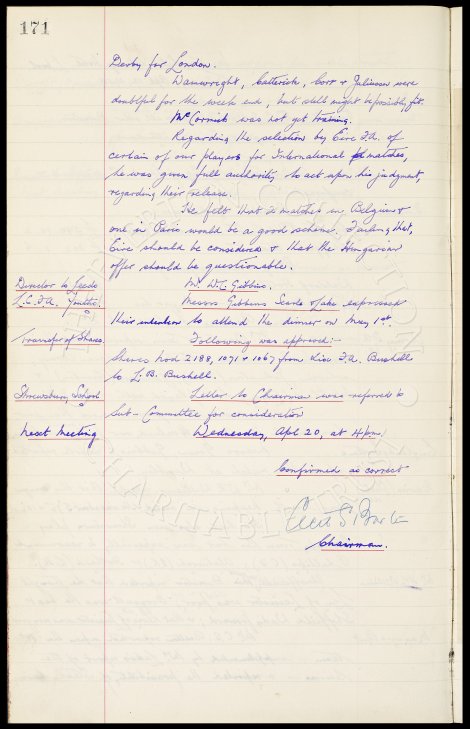 171
Derby for London.
Wainwright, Catterick, Corr & Juliussen were
doubtful for the week end, but still might be possibly fit.
McCormick was not yet training.
Regarding the selection by Eire F.A. of
certain of our players for International matches,
he was given full authority to act upon his judgment,
regarding their release.
He felt that 2 matches in Belgium &
one in Paris would be a good scheme. Failing that,
Eire should be considered & that the Hungarian
offer should be questionable.
Director to Leeds Mr W.C. Gibbins.
L.C.F.A. Messrs Gibbins Searle & expressed
their intention to attend the dinner on May 1st.
Transfer of Shares Following was approved:-
Shares Nod 2188, 1071 & 1067 from F.A. Bushell
to L.B. Bushell.
Shrewsbury School Letter to Chairman was referred to
Sub-Committee for consideration
Next Meeting Wednesday, Apl 20, at 4 pm.
Confirmed as correct
Chairman.
CHARITABLE TRUST